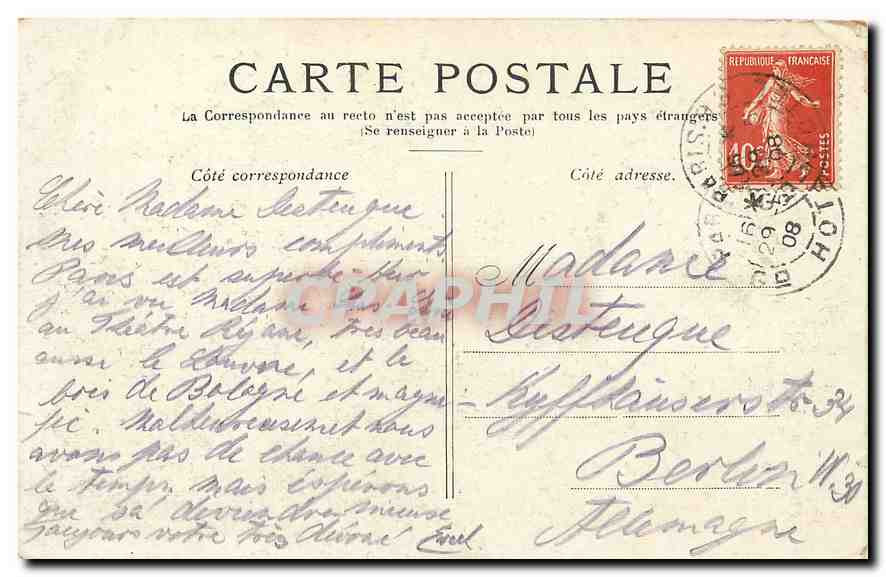 CARTE POSTALE
La Correspondance au recto n'est pas acceptée par tous les pays étrangers
(Se renseigner à la Poste)
Côté correspondance
Chère Madame Destengue
Mes meilleurs compliments
Paris est superbe hier
j'ai vu Madame
au Théâtre Réjane, très beau
aussi le Louvre, et le
bois de Bologne et magni
fic. Malheureusement nous
avons pas de chance avec
le temps, mais éspérons
que sa deviendra mieuse
toujours votre très dévoué
Côté adresse.
Madame
Destengue
Kyffhäuserstr. 34
Berlin W. 30
Allemagne
REPUBLIQUE FRANÇAISE
10c
POSTES
PARIS
HOTEL
29
08
CPAPHIL